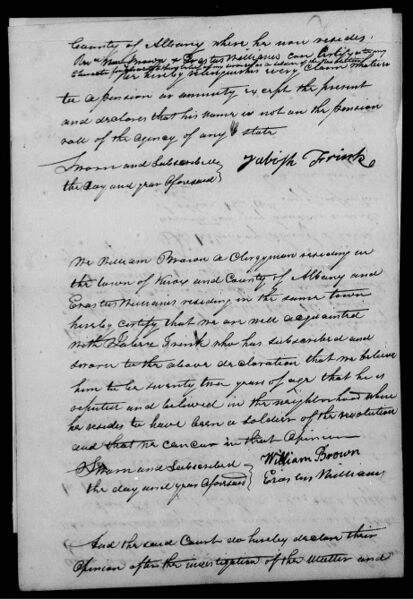 County of Albany where he now resides.
Revd William Brown & Erastus Williams can certify as to my
character for and their belief of my services as a soldier of the Revolution
He hereby relinquishes every claim whatever
to a pension or annuity except the present
and declares that his name is not on the pension
roll of the agency of any state
Sworn and Subscribed
the day and year aforesaid
Jabish Frink
We William Brown a Clergyman residing in
the town of Knox and County of Albany and
Erastus Williams residing in the same town
hereby certify that we are well acquainted
with Jabez Frink who has subscribed and
sworn to the above declaration that we believe
him to be seventy two years of age that he is
reputed and believed in the neighborhood where
he resides to have been a soldier of the revolution
and that we concur in that Opinion
Sworn and Subscribed
the day and year aforesaid
William Brown
Erastus Williams
And the said Court do hereby declare their
Opinion after the investigation of the Matter and